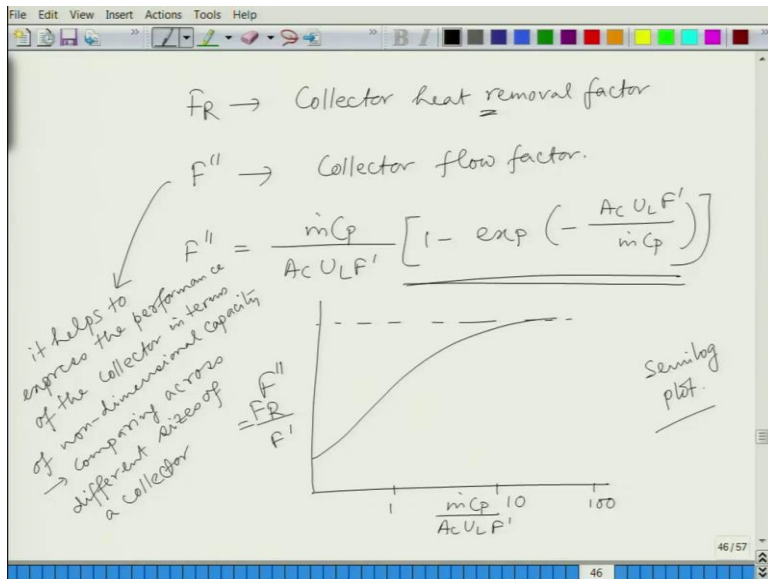 File Edit View Insert Actions Tools Help
B I
F_R → Collector heat removal factor
F'' → Collector flow factor.
F'' = ṁCp / (Ac U_L F') [1 - exp (- Ac U_L F' / ṁCp)]
it helps to
express the performance
of the collector in terms
of non-dimensional capacity
→ comparing across
different sizes of
a collector
F''
= F_R / F'
Semilog
plot.
1 10 100
ṁCp / (Ac U_L F')
46/57
46